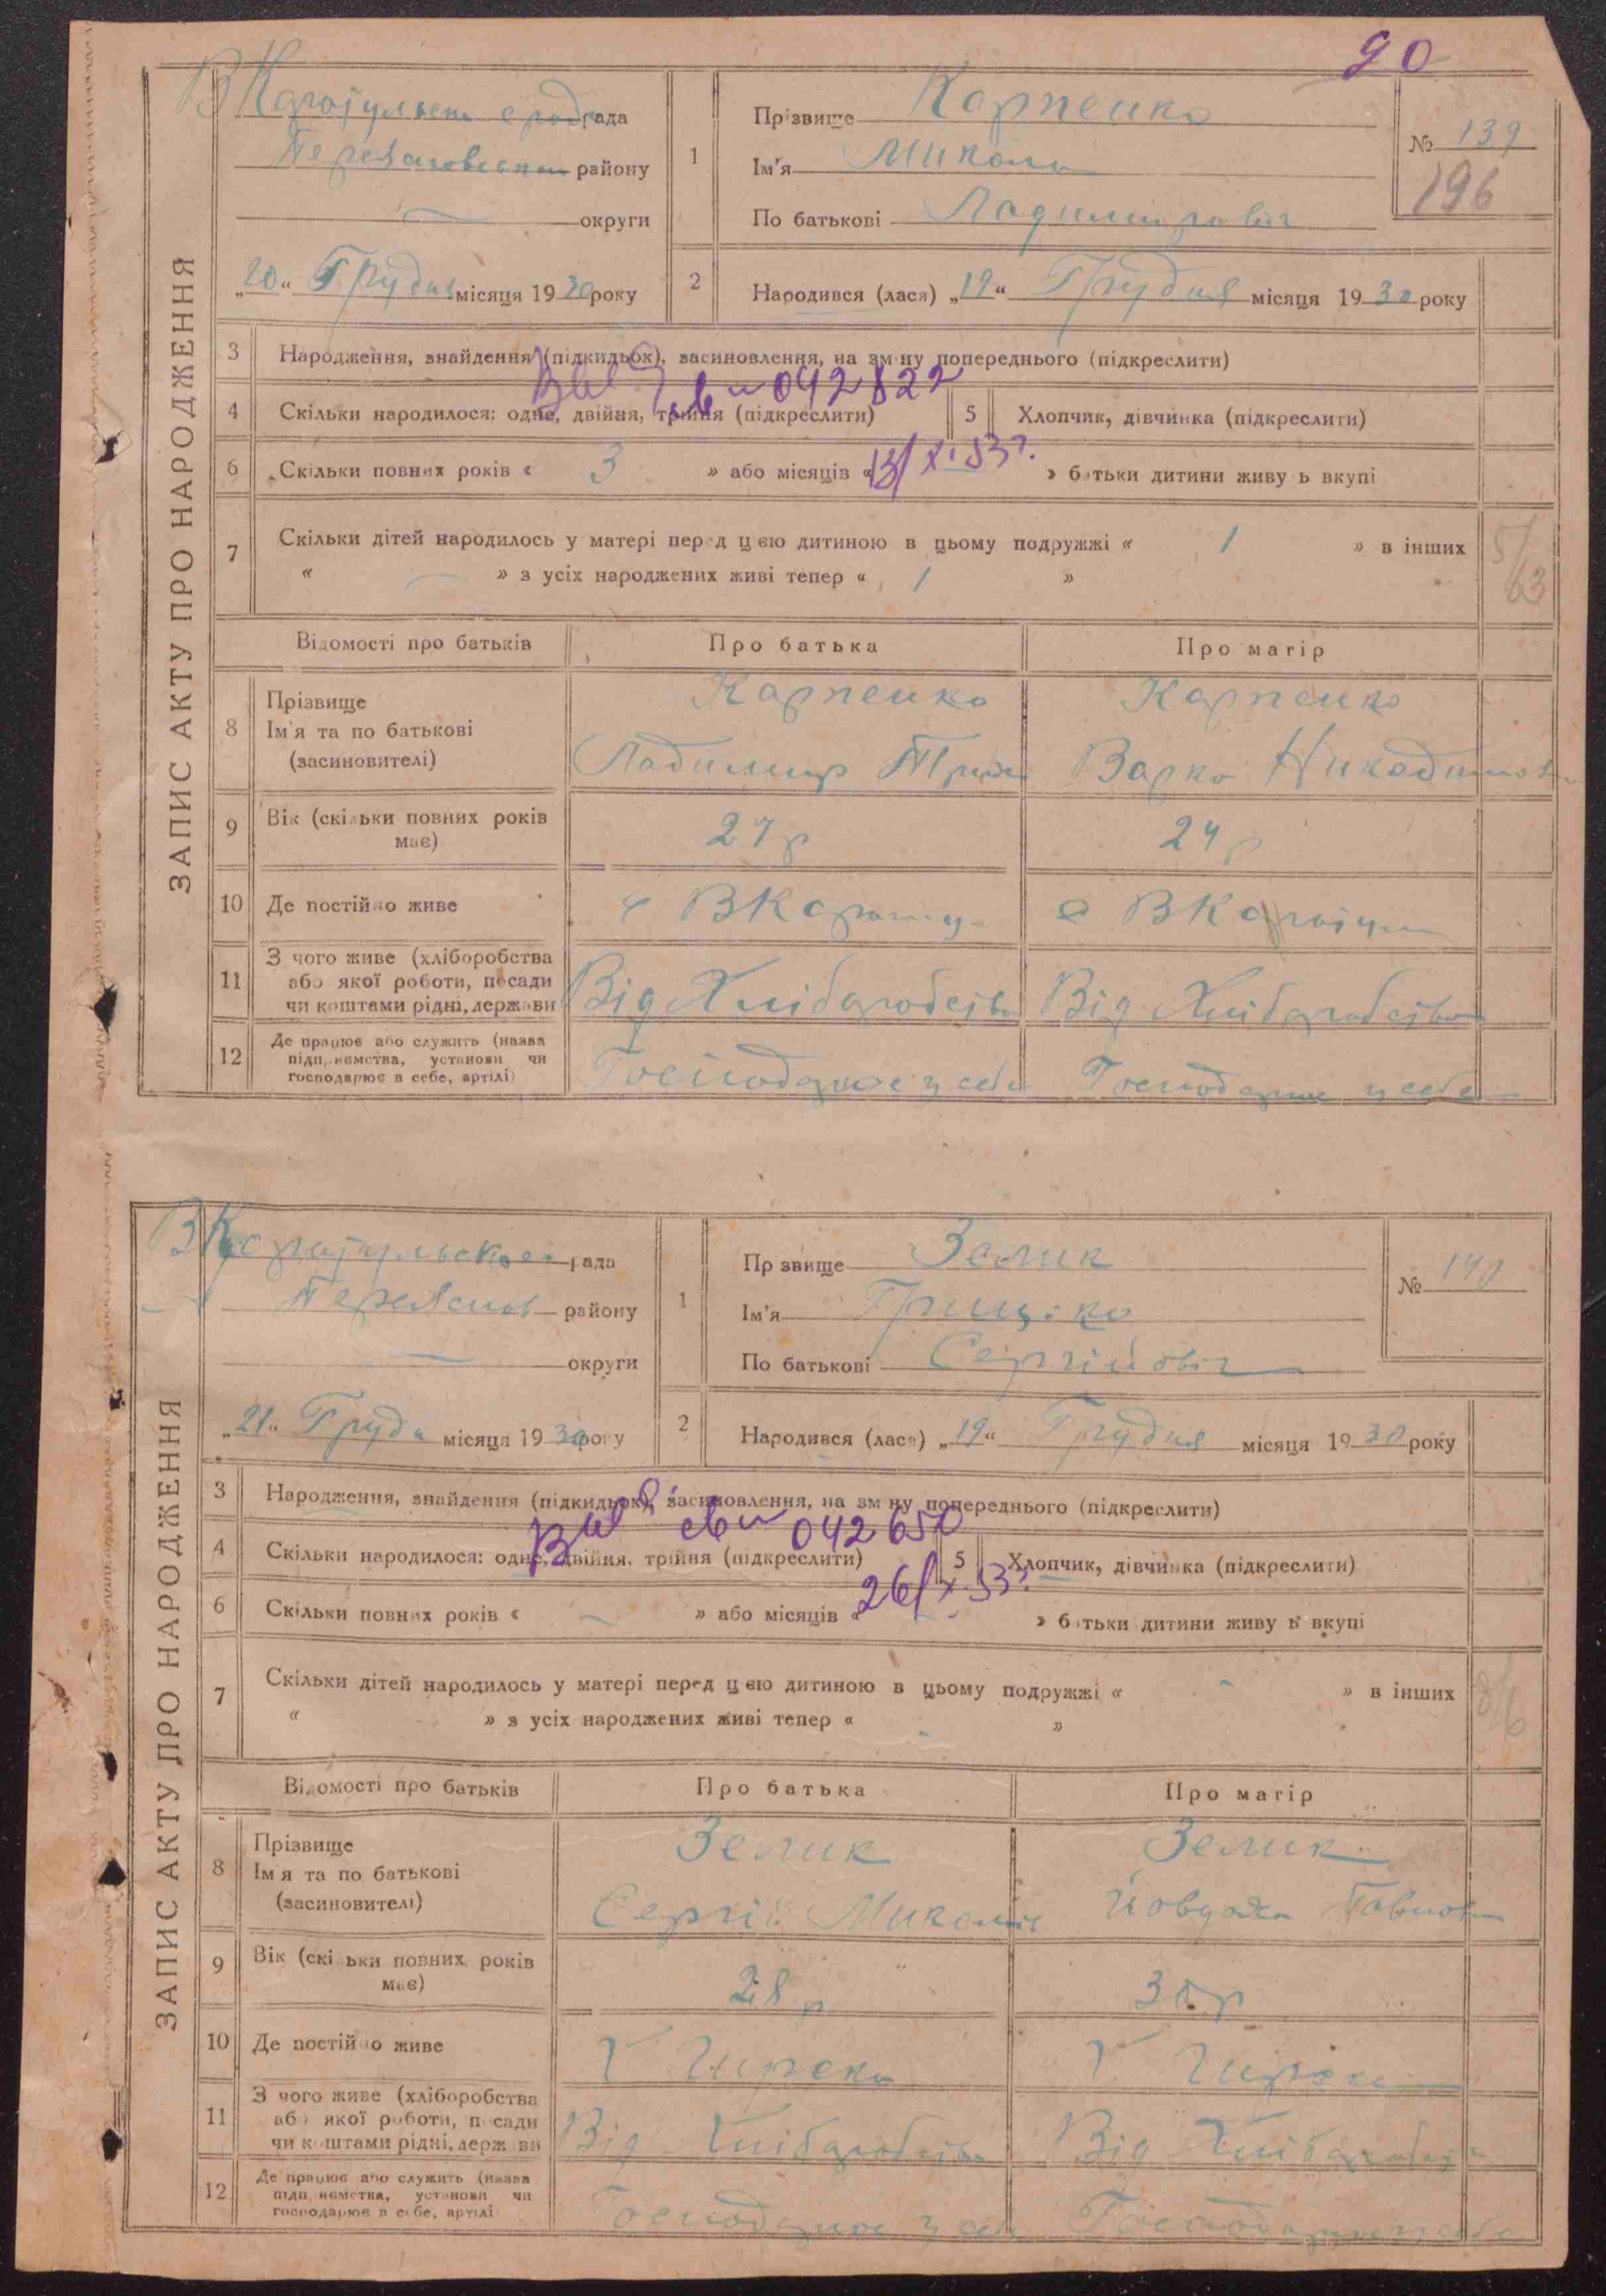 90
ЗАПИС АКТУ ПРО НАРОДЖЕННЯ
рада
району
округи
„20“ Грудня місяця 1930 року
1
Прізвище Карпенко
Ім'я Микола
По батькові Ладимирович
№ 139
196
2
Народився (лася) „19“ Грудня місяця 1930 року
3 Народження, знайдення (підкидьок), засиновлення, на зміну попереднього (підкреслити)
042822
4 Скільки народилося: одне, двійня, трійня (підкреслити) 5 Хлопчик, дівчинка (підкреслити)
6 Скільки повних років « 3 » або місяців « » батьки дитини живуть вкупі
7 Скільки дітей народилось у матері перед цією дитиною в цьому подружжі « 1 » в інших
« — » з усіх народжених живі тепер « 1 »
Відомості про батьків Про батька Про матір
8 Прізвище
Ім'я та по батькові
(засиновителі)
Карпенко
Ладимир
Карпенко
Варка
9 Вік (скільки повних років
має)
27 р
24 р
10 Де постійно живе
11 З чого живе (хліборобства
або якої роботи, посади
чи коштами рідні, держави
Від Хліборобства
Від Хліборобства
12 Де працює або служить (назва
підприємства, установи чи
господарює в себе, артілі)
Господарює у себе
Господарює у себе
ЗАПИС АКТУ ПРО НАРОДЖЕННЯ
рада
Переяслов району
округи
„21“ Грудня місяця 1930 року
1
Прізвище Зелик
Ім'я Грицько
По батькові Сергійовіч
№ 140
2
Народився (лася) „19“ Грудня місяця 1930 року
3 Народження, знайдення (підкидьок), засиновлення, на зміну попереднього (підкреслити)
042650
4 Скільки народилося: одне, двійня, трійня (підкреслити) 5 Хлопчик, дівчинка (підкреслити)
26/X-53
6 Скільки повних років « — » або місяців « » батьки дитини живуть вкупі
7 Скільки дітей народилось у матері перед цією дитиною в цьому подружжі « - » в інших
« » з усіх народжених живі тепер « - »
Відомості про батьків Про батька Про матір
8 Прізвище
Ім'я та по батькові
(засиновителі)
Зелик
Сергій
Зелик
9 Вік (скільки повних років
має)
28 р
10 Де постійно живе
11 З чого живе (хліборобства
або якої роботи, посади
чи коштами рідні, держави
Від Хліборобства
Від Хліборобства
12 Де працює або служить (назва
підприємства, установи чи
господарює в себе, артілі
Господарює у себе
Господарює у себе